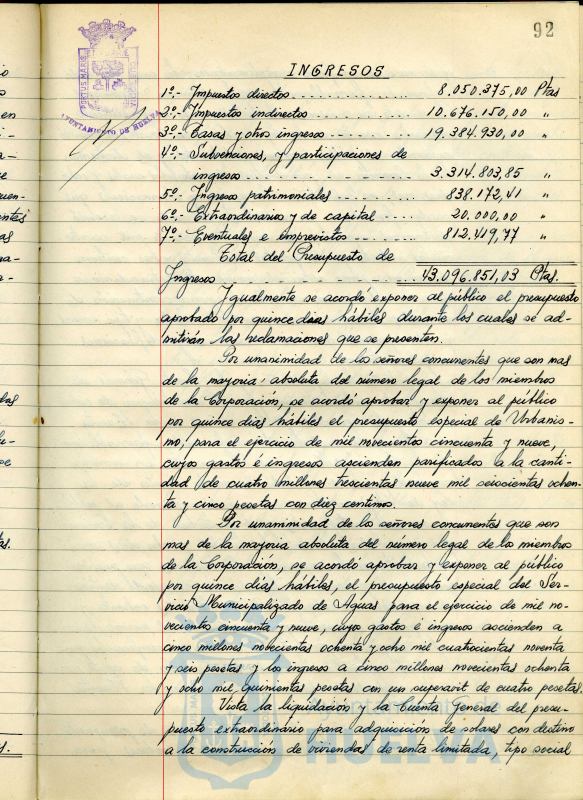 92
PORTUS MARIS
AYUNTAMIENTO DE HUELVA
INGRESOS
1º.- Impuestos directos . . . . . . . . . . . . 8.050.375,00 Ptas
2º.- Impuestos indirectos . . . . . . . . . . 10.676.150,00 "
3º.- Tasas y otros ingresos . . . . . . . . 19.384.930,00 "
4º.- Subvenciones, y participaciones de
ingresos . . . . . . . . . . . . . . . . 3.314.803,85 "
5º.- Ingresos patrimoniales . . . . . . . 838.172,41 "
6º.- Extraordinarios y de capital . . . . 20.000,00 "
7º.- Eventuales e imprevistos . . . . . . 812.419,77 "
Total del Presupuesto de
Ingresos . . . . . . . . . . . . . . . . 43.096.851,03 Ptas.
Igualmente se acordó exponer al público el presupuesto
aprobado por quince dias hábiles durante los cuales se ad-
mitirán las reclamaciones que se presenten.
Por unanimidad de los señores concurrentes que son mas
de la mayoria absoluta del número legal de los miembros
de la Corporación, se acordó aprobar y exponer al público
por quince dias hábiles el presupuesto especial de Urbanis-
mo, para el ejercicio de mil novecientos cincuenta y nueve,
cuyos gastos é ingresos ascienden parificados a la canti-
dad de cuatro millones trescientas nueve mil seiscientas ochen-
ta y cinco pesetas con diez centimos.
Por unanimidad de los señores concurrentes que son
mas de la mayoria absoluta del número legal de los miembros
de la Corporación, se acordó aprobar y exponer al público
por quince dias hábiles, el presupuesto especial del Ser-
vicio Municipalizado de Aguas para el ejercicio de mil no-
vecientos cincuenta y nueve, cuyos gastos é ingresos ascienden a
cinco millones novecientas ochenta y ocho mil cuatrocientas noventa
y seis pesetas y los ingresos a cinco millones novecientas ochenta
y ocho mil quinientas pesetas con un superavit de cuatro pesetas.
Vista la liquidación y la Cuenta General del presu-
puesto extraordinario para adquisición de solares con destino
a la construcción de viviendas de renta limitada, tipo social
HUELVA